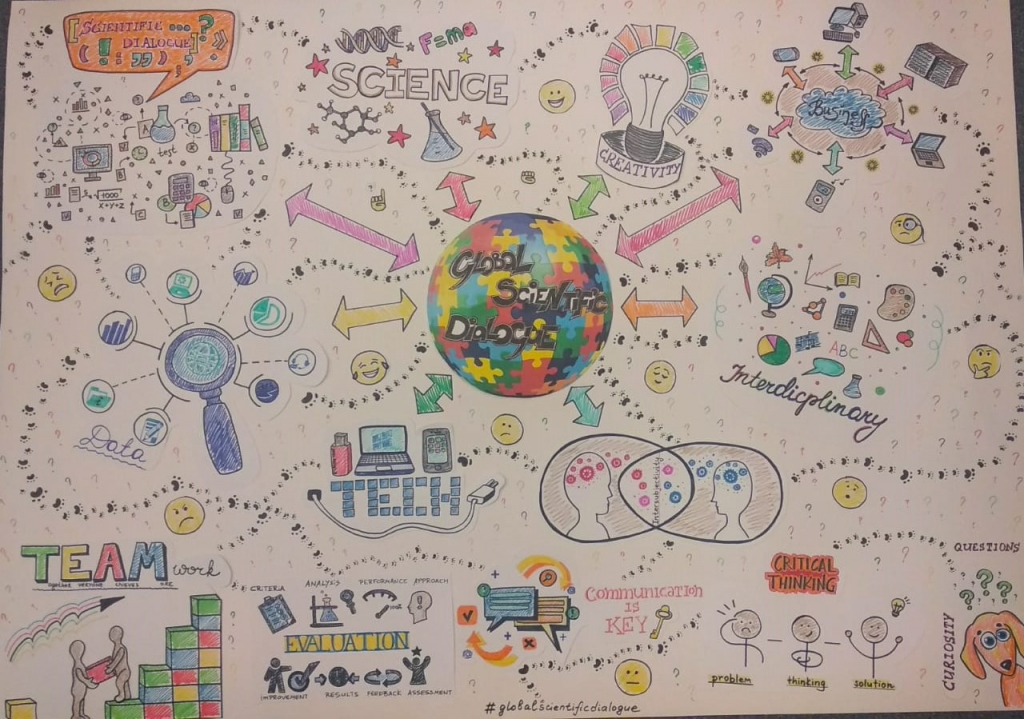 [SCIENTIFIC ...?
(! = ,,) DIALOGUE].»
A
test
1000
X+Y=Z
B
C
F=ma
SCIENCE
CREATIVITY
Business
GLOBAL
SCIENTIFIC
DIALOGUE
Data
ABC
Interdicplinary
TECH
Intersubjectivity
TEAM
work
CRITERIA
ANALYSIS
PERFORMANCE
APPROACH
100%
EVALUATION
IMPROVEMENT
RESULTS
FEEDBACK
ASSESSMENT
COMMUNICATION
IS
KEY
CRITICAL
THINKING
problem
thinking
solution
QUESTIONS
CURIOSITY
#globalscientificdialogue